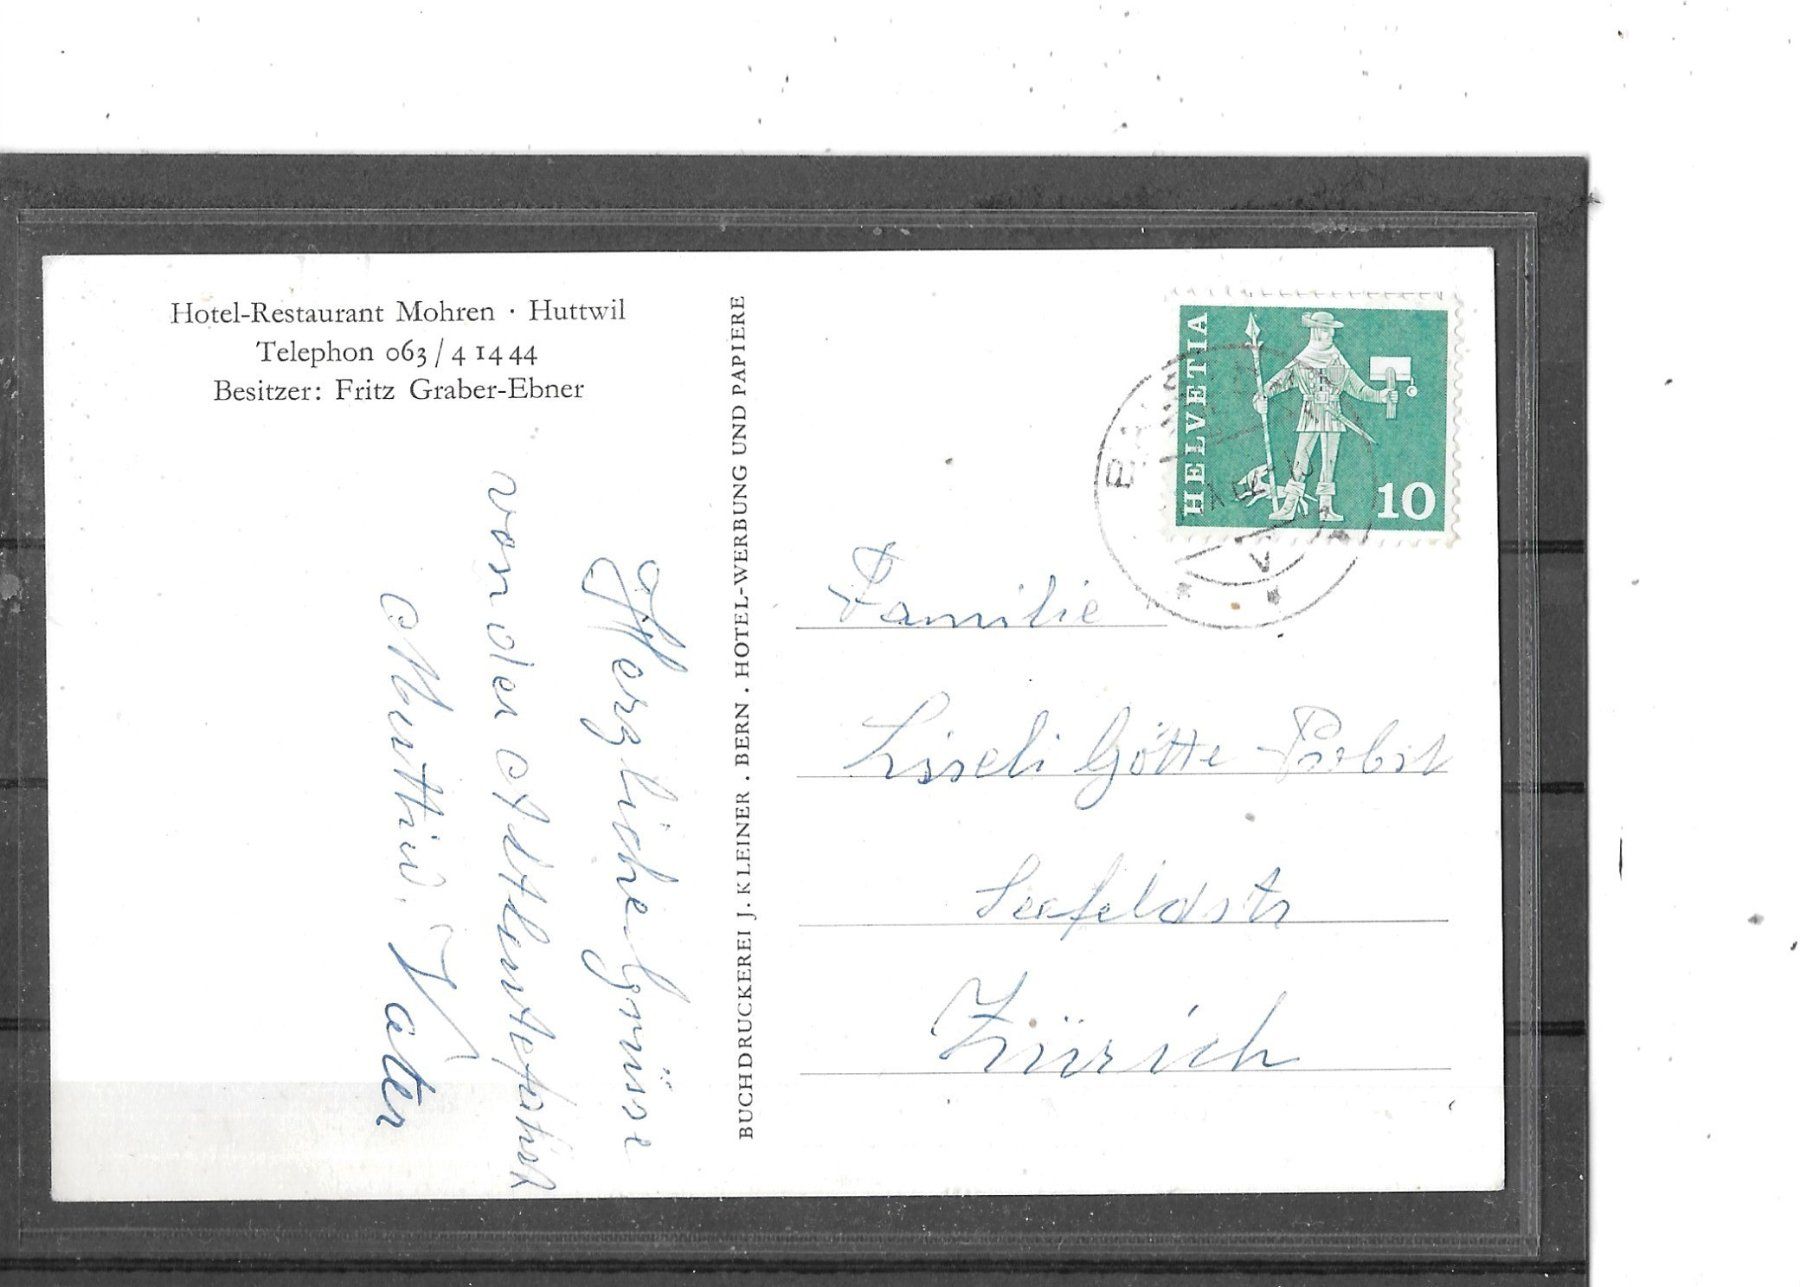 Hotel-Restaurant Mohren · Huttwil
Telephon 063 / 4 14 44
Besitzer: Fritz Graber-Ebner
Herzliche Grüsse
von der
Vater
BUCHDRUCKEREI J. KLEINER . BERN . HOTEL-WERBUNG UND PAPIERE
HELVETIA
10
Familie
Liseli Götte-Probst
Seefeldstr
Zürich